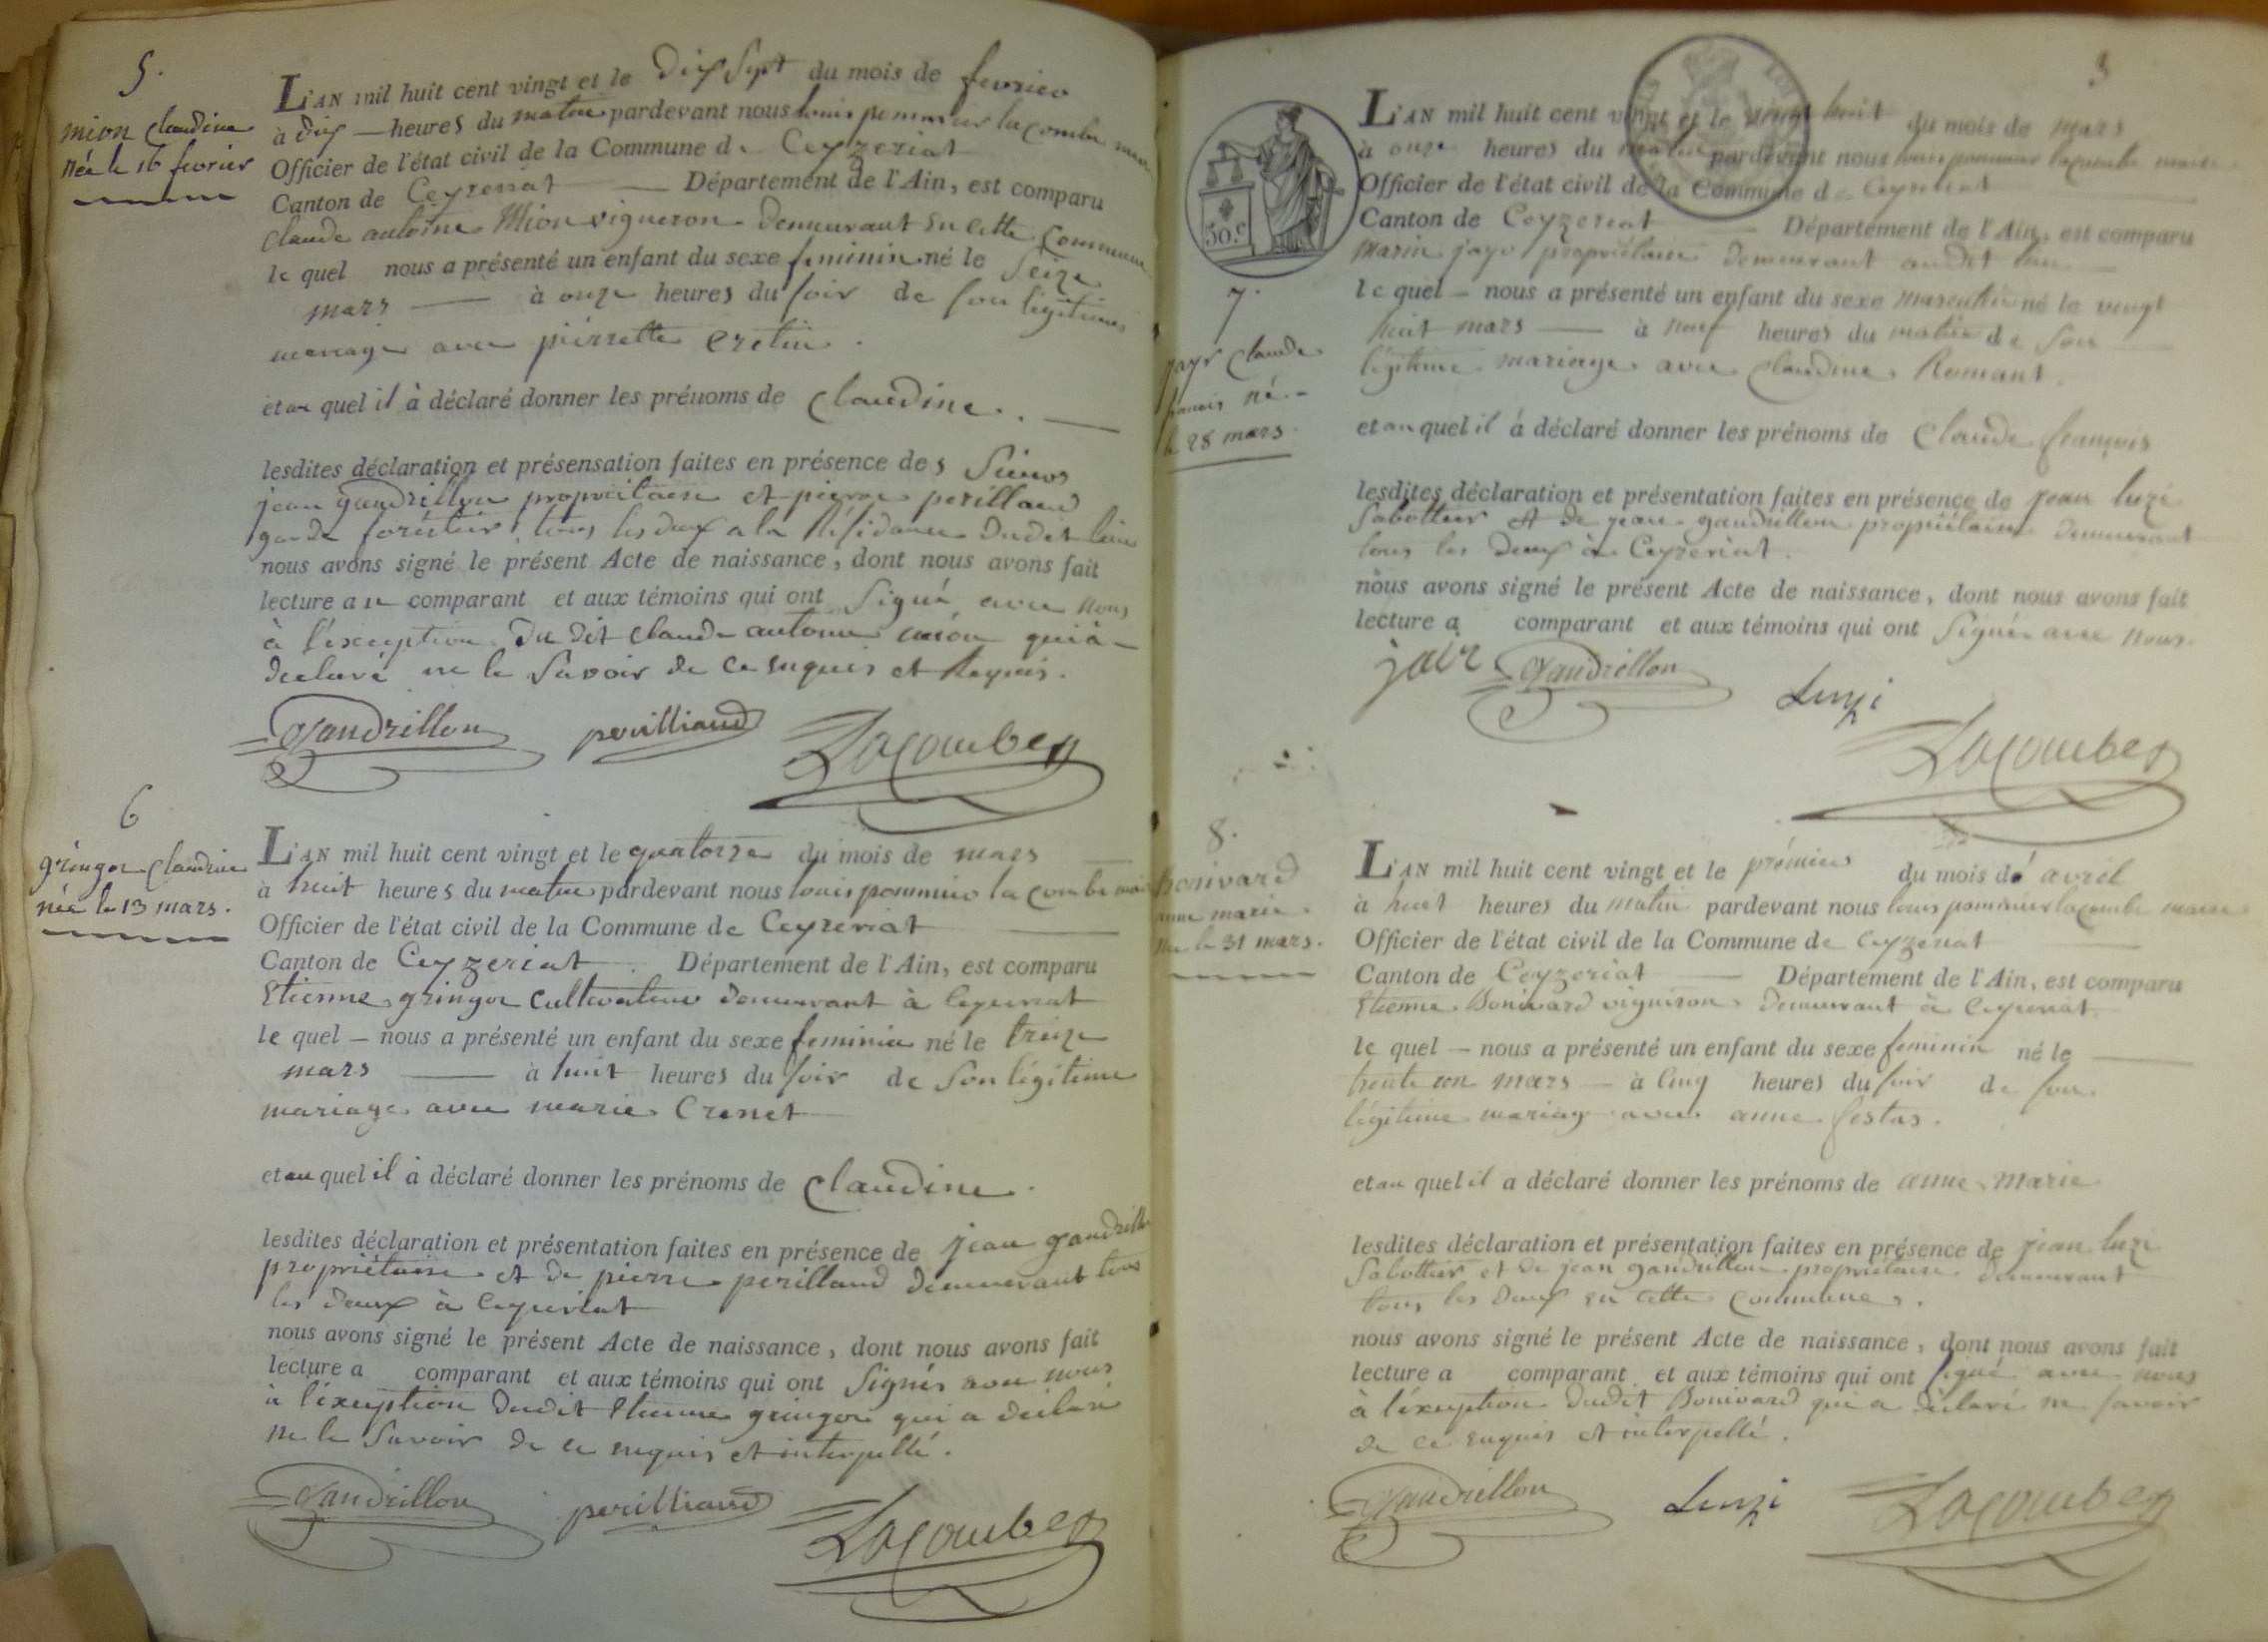 5.
mion claudine
née le 16 fevrier
L'AN mil huit cent vingt et le dix sept du mois de fevrier
à dix heures du matin pardevant nous louis pommier lacombe maire
Officier de l'état civil de la Commune de Ceyzeriat
Canton de Ceyzeriat Département de l'Ain, est comparu
claude antoine Mion vigneron demeurant en cette commune
le quel nous a présenté un enfant du sexe feminin né le Seize
mars à onze heures du soir de son légitime
mariage avec pierrette cretin.
et au quel il à déclaré donner les prénoms de claudine.
lesdites déclaration et présensation faites en présence des Sieurs
jean gandrillon propriétaire et pierre perilland
garde forestier, tous les deux a la Résidance dudit lieu
nous avons signé le présent Acte de naissance, dont nous avons fait
lecture au comparant et aux témoins qui ont Signé avec nous
à l'éxception du dit claude antoine mion qui à
declaré ne le Savoir de ce enquis et Requis.
Gandrillon perilliaud Lacombe
6
gringoz claudine
née le 13 mars.
L'AN mil huit cent vingt et le quatorze du mois de mars
à huit heures du matin pardevant nous louis pommier la combe maire
Officier de l'état civil de la Commune de Ceyzeriat
Canton de Ceyzeriat. Département de l'Ain, est comparu
Etienne gringoz cultivateur demeurant à ceyzeriat
le quel nous a présenté un enfant du sexe feminin né le treize
mars à huit heures du soir de son légitime
mariage avec marie Crenet
et au quel il à déclaré donner les prénoms de claudine.
lesdites déclaration et présentation faites en présence de jean gandrillon
propriétaire et de pierre perilland demeurant tous
les deux à ceyzeriat
nous avons signé le présent Acte de naissance, dont nous avons fait
lecture a comparant et aux témoins qui ont Signés avec nous
à l'éxception dudit Etienne gringoz qui a déclaré
ne le Savoir de ce enquis et interpellé.
Gandrillon perilliaud Lacombe
3
50.c
7.
jayr claude
francois né
le 28 mars.
L'AN mil huit cent vingt et le vingt huit du mois de mars
à onze heures du matin pardevant nous louis pommier lacombe maire
Officier de l'état civil de la Commune de Ceyzeriat
Canton de Ceyzeriat Département de l'Ain, est comparu
marin jayr propriétaire demeurant audit lieu
le quel nous a présenté un enfant du sexe masculin né le vingt
huit mars à neuf heures du matin de son
légitime mariage avec claudine Romant.
et au quel il à déclaré donner les prénoms de claude françois
lesdites déclaration et présentation faites en présence de jean luzi
Sabottier et de jean gandrillon propriétaire demeurant
tous les deux à Ceyzeriat.
nous avons signé le présent Acte de naissance, dont nous avons fait
lecture a comparant et aux témoins qui ont Signés avec nous.
jair Gandrillon Luzi
Lacombe
8.
bonivard
anne marie
née le 31 mars.
L'AN mil huit cent vingt et le prémier du mois dé avril
à huit heures du matin pardevant nous louis pommier lacombe maire
Officier de l'état civil de la Commune de Ceyzeriat
Canton de Ceyzeriat Département de l'Ain, est comparu
Etienne Bonivard vigneron demeurant à Ceyzeriat
le quel nous a présenté un enfant du sexe feminin né le
trente un mars à cinq heures du soir de son
légitime mariage avec anne festas.
et au quel il a déclaré donner les prénoms de anne marie
lesdites déclaration et présentation faites en présence de jean luze
Sabottier et de jean gandrillon propriétaire demeurant
tous les deux en cette commune.
nous avons signé le présent Acte de naissance, dont nous avons fait
lecture a comparant et aux témoins qui ont signé avec nous
à l'éxception dudit Bonivard qui a déclaré ne savoir
de ce enquis et interpellé.
Gandrillon Luzi Lacombe